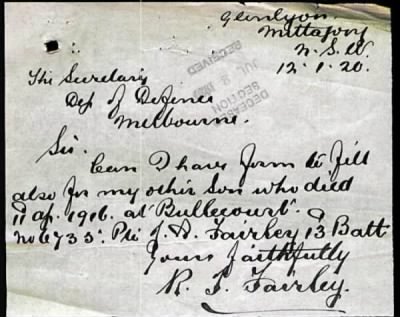 Glenlyon
Mittagong
N.S.W.
12.1.20.
RECEIVED
DECEASED
SECTION
The Secretary
Dep of Defence
Melbourne.
Sir.
Can I have form to fill
also for my other Son who died
11 ap. 1916. at "Bullecourt".
No 6733. Pte J. A. Fairley 13 Batt
Yours faithfully
R. F. Fairley.